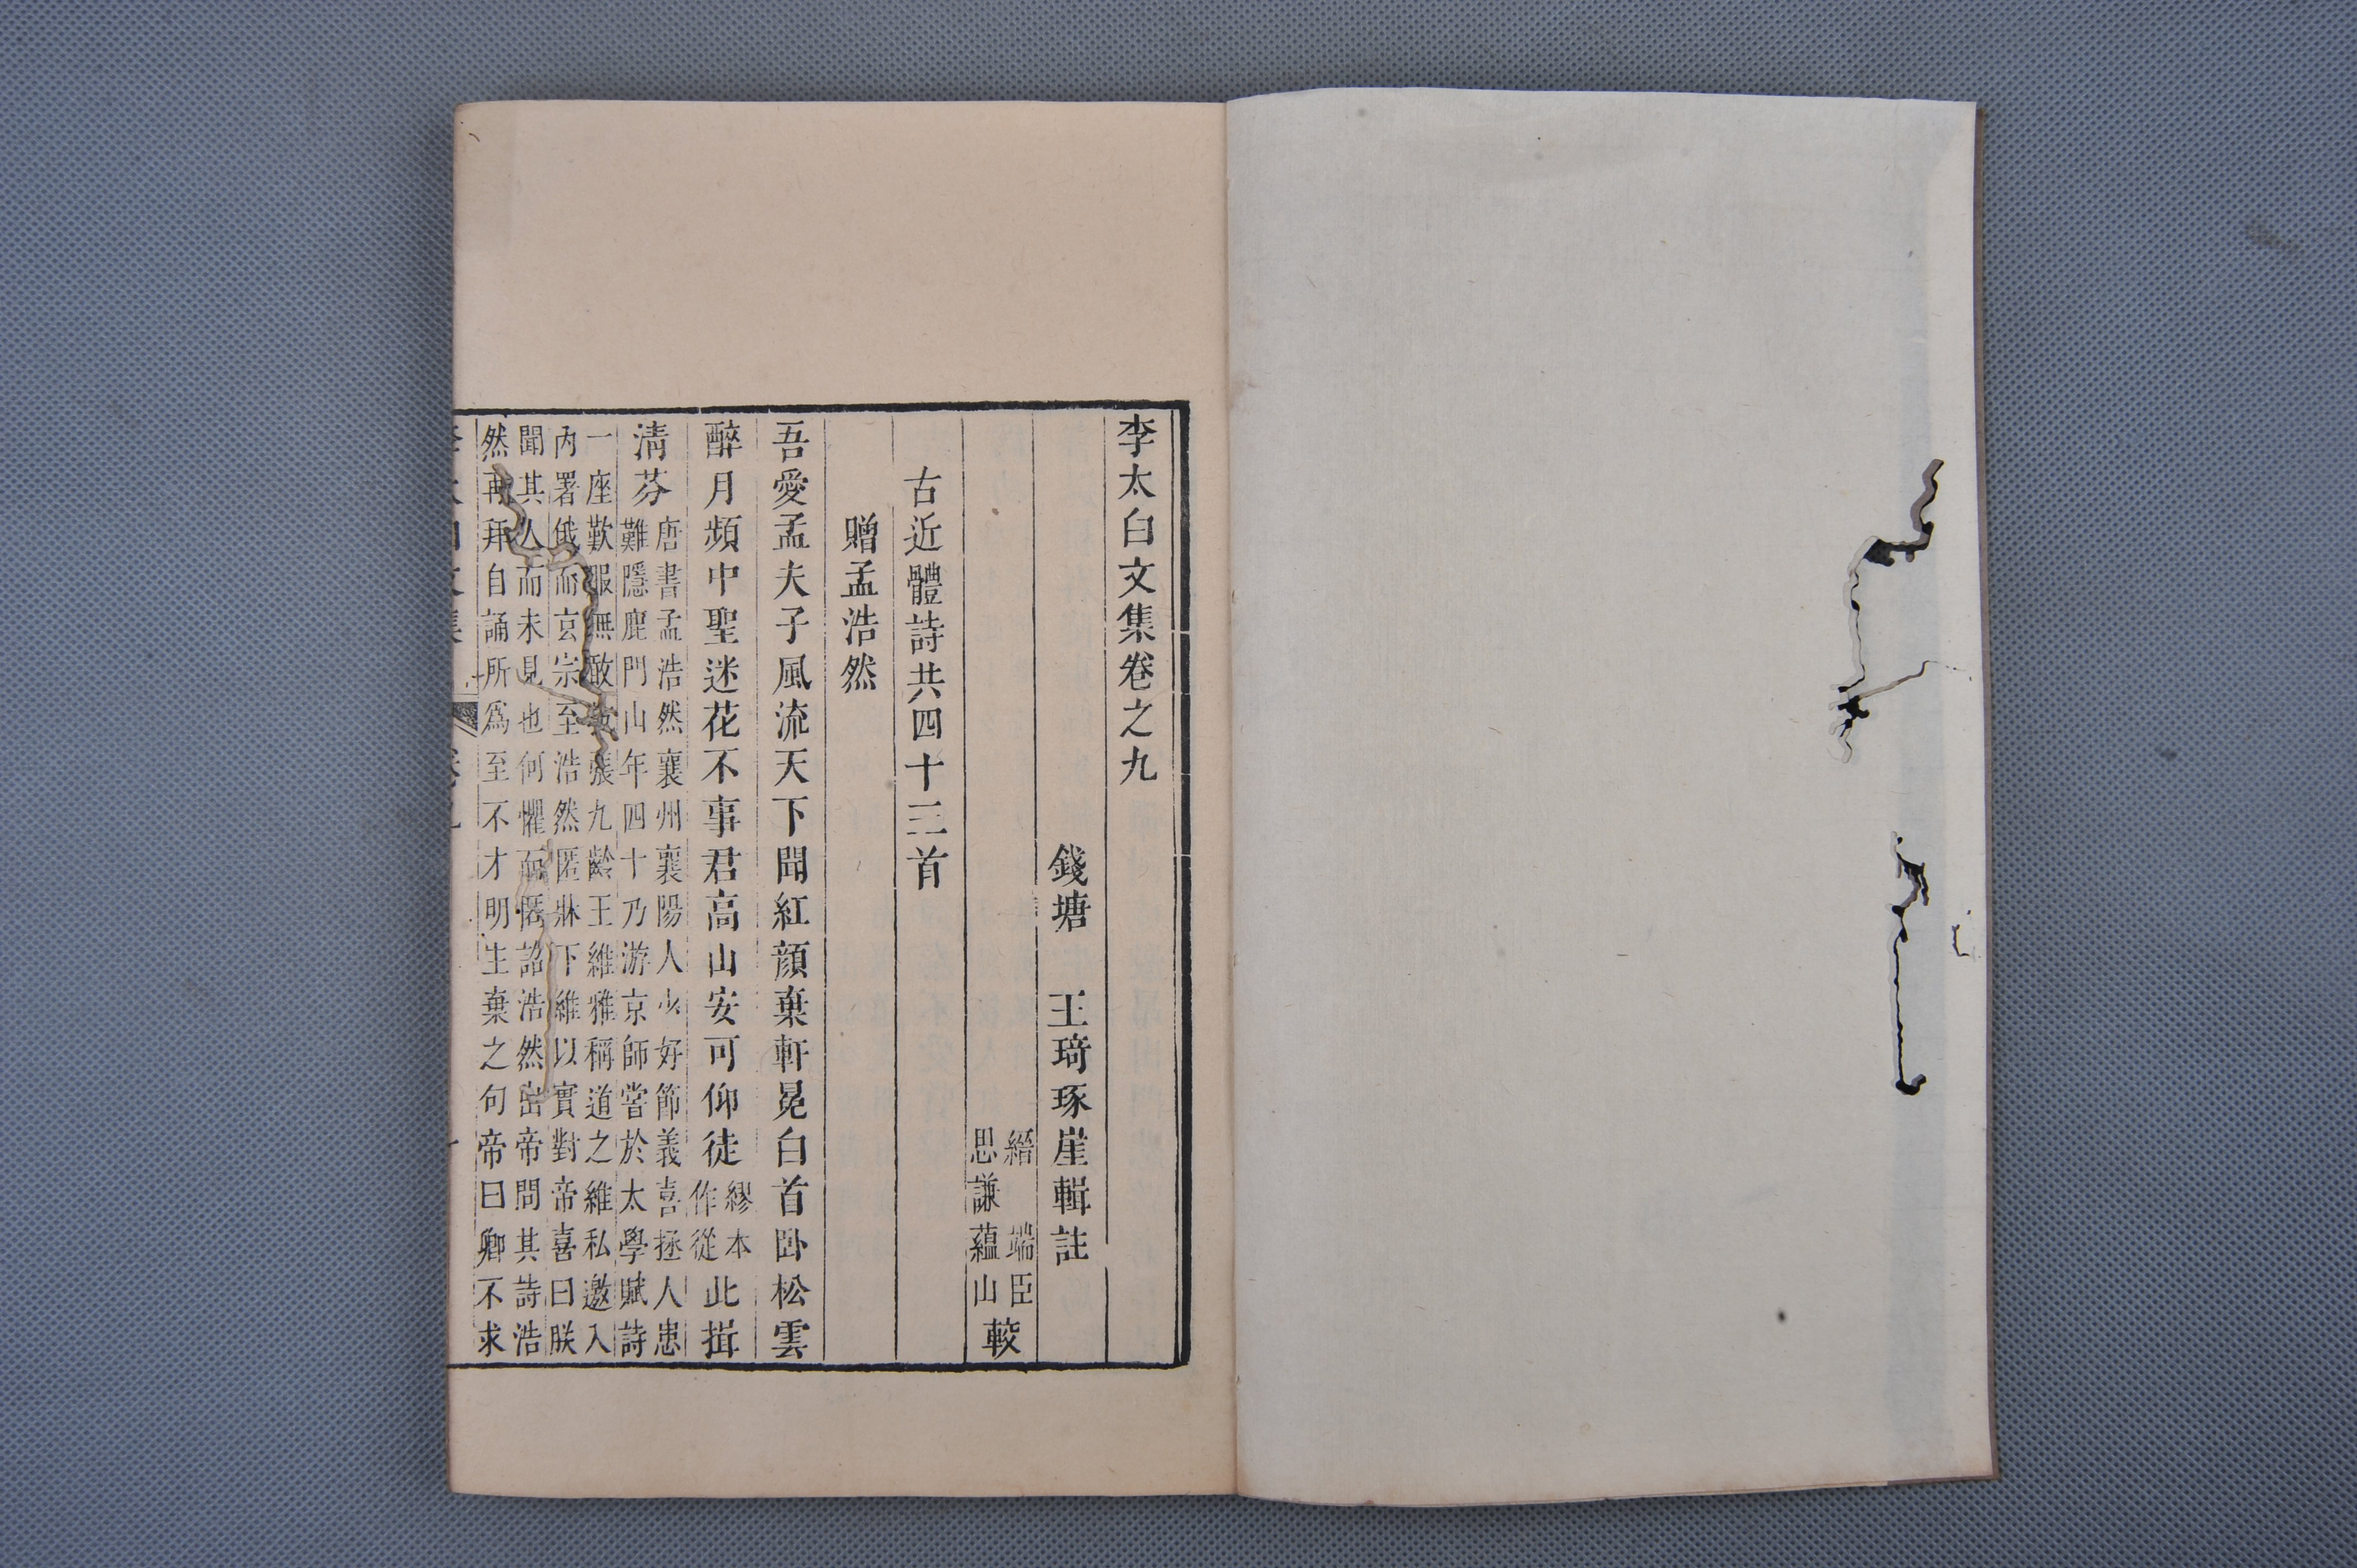 李太白文集卷之九
錢塘 王琦琢崖輯註
縉 端臣
思謙蘊山
較
古近體詩共四十三首
贈孟浩然
吾愛孟夫子風流天下聞紅顔棄軒冕白首臥松雲
醉月頻中聖迷花不事君高山安可仰徒
繆本
作從
此揖
清芬
唐書孟浩然襄州襄陽人少好節義喜拯人患
難隱鹿門山年四十乃游京師嘗於太學賦詩
一座歎服無敢抗張九齡王維雅稱道之維私邀入
內署俄而玄宗至浩然匿牀下維以實對帝喜曰朕
聞其人而未見也何懼而匿詔浩然出帝問其詩浩
然再拜自誦所爲至不才明主棄之句帝曰卿不求